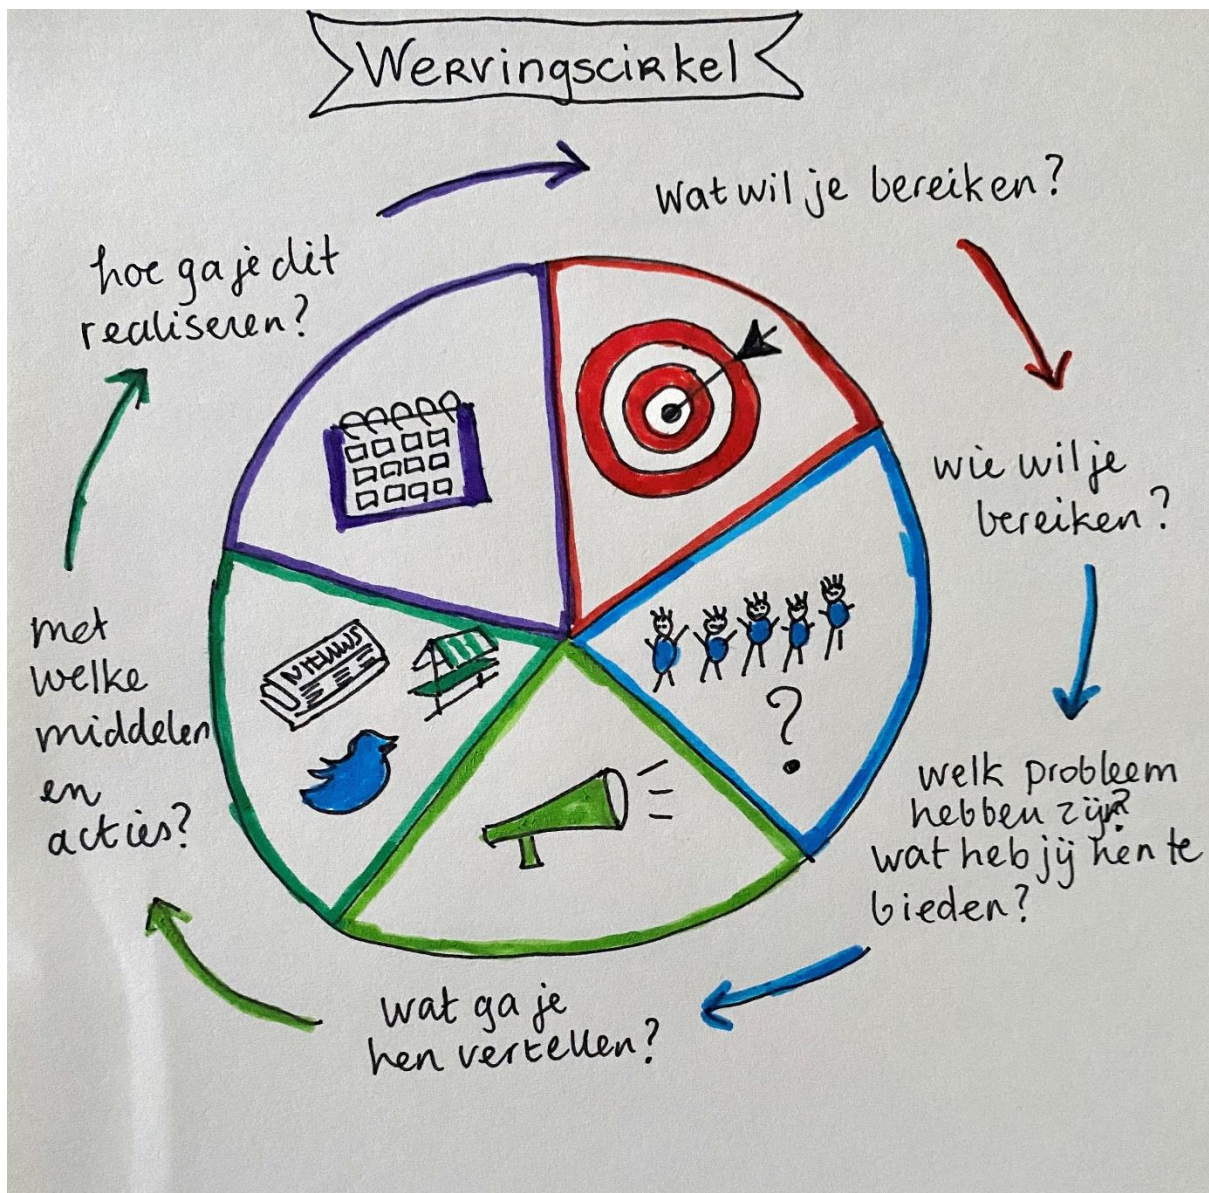 Wervingscirkel
wat wil je bereiken?
wie wil je
bereiken?
welk probleem
hebben zij?
wat heb jij hen te
bieden?
wat ga je
hen vertellen?
met
welke
middelen
en
acties?
hoe ga je dit
realiseren?
NIEUWS
?